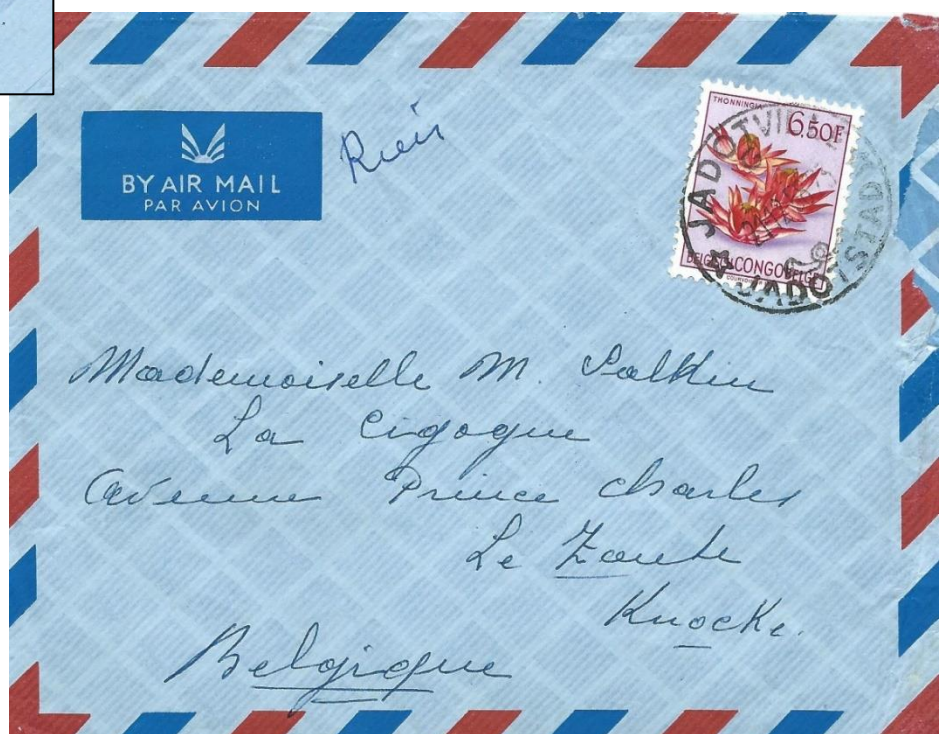 BY AIR MAIL
PAR AVION
THONNINGIA
6,50F
BELGISCH CONGO BELGE
JADOTVILLE
JADOTSTAD
Mademoiselle M.
La Cigogne
Avenue Prince Charles
Le Zoute
Knocke.
Belgique